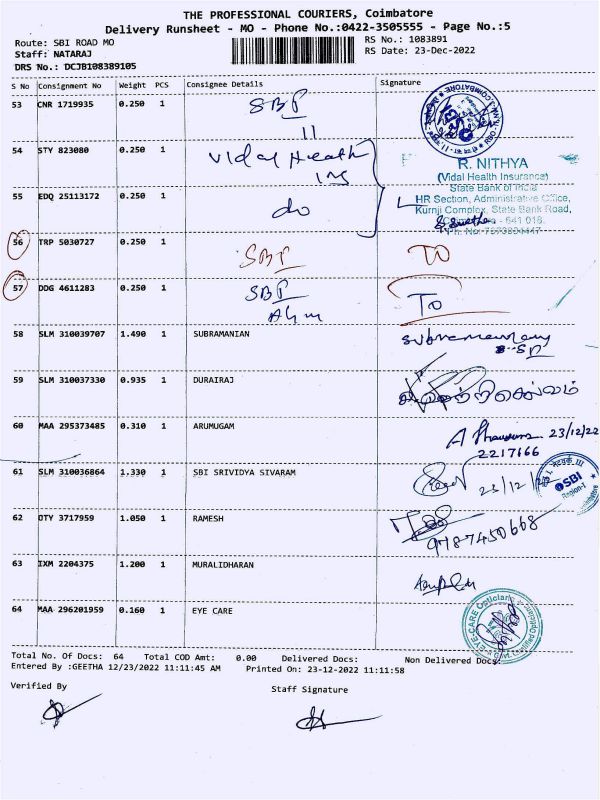 THE PROFESSIONAL COURIERS, Coimbatore
Delivery Runsheet - MO - Phone No.:0422-3505555 - Page No.:5
Route: SBI ROAD MO
RS No.: 1083891
Staff: NATARAJ
RS Date: 23-Dec-2022
DRS No.: DCJB108389105
S No Consignment No Weight PCS Consignee Details Signature
53 CNR 1719935 0.250 1
11
54 STY 823080 0.250 1 Vidal Health Ins
R. NITHYA
(Vidal Health Insurance)
State Bank of India
HR Section, Administrative Office,
Kurnji Complex, State Bank Road,
- 641 018.
55 EDQ 25113172 0.250 1 do
56 TRP 5030727 0.250 1 TO
57 DDG 4611283 0.250 1 TO
58 SLM 310039707 1.490 1 SUBRAMANIAN
59 SLM 310037330 0.935 1 DURAIRAJ
60 MAA 295373485 0.310 1 ARUMUGAM 23/12/22
2217166
61 SLM 310036864 1.330 1 SBI SRIVIDYA SIVARAM 23/12/22
SBI
Region-I
62 OTY 3717959 1.050 1 RAMESH
9787450668
63 IXM 2204375 1.200 1 MURALIDHARAN
64 MAA 296201959 0.160 1 EYE CARE
Total No. Of Docs: 64 Total COD Amt: 0.00 Delivered Docs: Non Delivered Docs:
Entered By :GEETHA 12/23/2022 11:11:45 AM Printed On: 23-12-2022 11:11:58
Verified By
Staff Signature